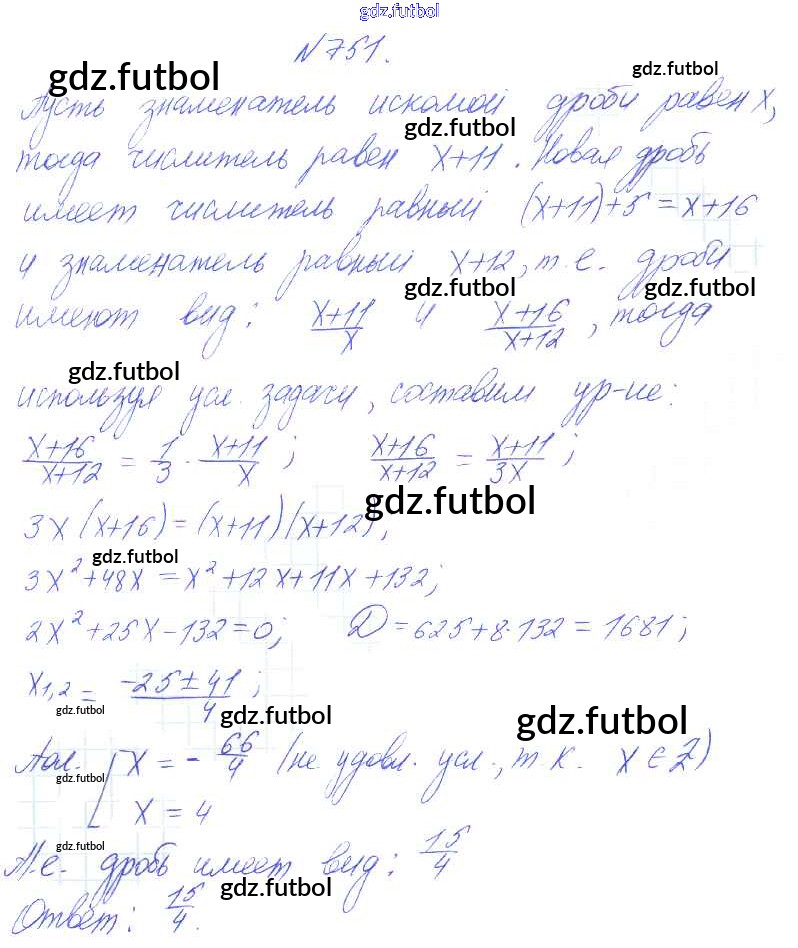 gdz.futbol
N 751.
gdz.futbol
gdz.futbol
Пусть знаменатель искомой дроби равен x,
gdz.futbol
тогда числитель равен x+11. Новая дробь
имеет числитель равный (x+11)+5=x+16
и знаменатель равный x+12, т.е. дроби
gdz.futbol
gdz.futbol
имеют вид: \frac{x+11}{x} и \frac{x+16}{x+12}, тогда
gdz.futbol
используя усл. задачи, составим ур-ие:
\frac{x+16}{x+12} = \frac{1}{3} · \frac{x+11}{x}; \frac{x+16}{x+12} = \frac{x+11}{3x};
gdz.futbol
3x(x+16)=(x+11)(x+12);
gdz.futbol
3x²+48x=x²+12x+11x+132;
2x²+25x-132=0; D=625+8·132=1681;
x1,2 = \frac{-25±41}{4};
gdz.futbol
gdz.futbol
gdz.futbol
Пол. [ x = -\frac{66}{4} (не удовл. усл., т.к. x ∈ Z)
gdz.futbol
x = 4
gdz.futbol
Т.е. дробь имеет вид: \frac{15}{4}
gdz.futbol
Ответ: \frac{15}{4}.